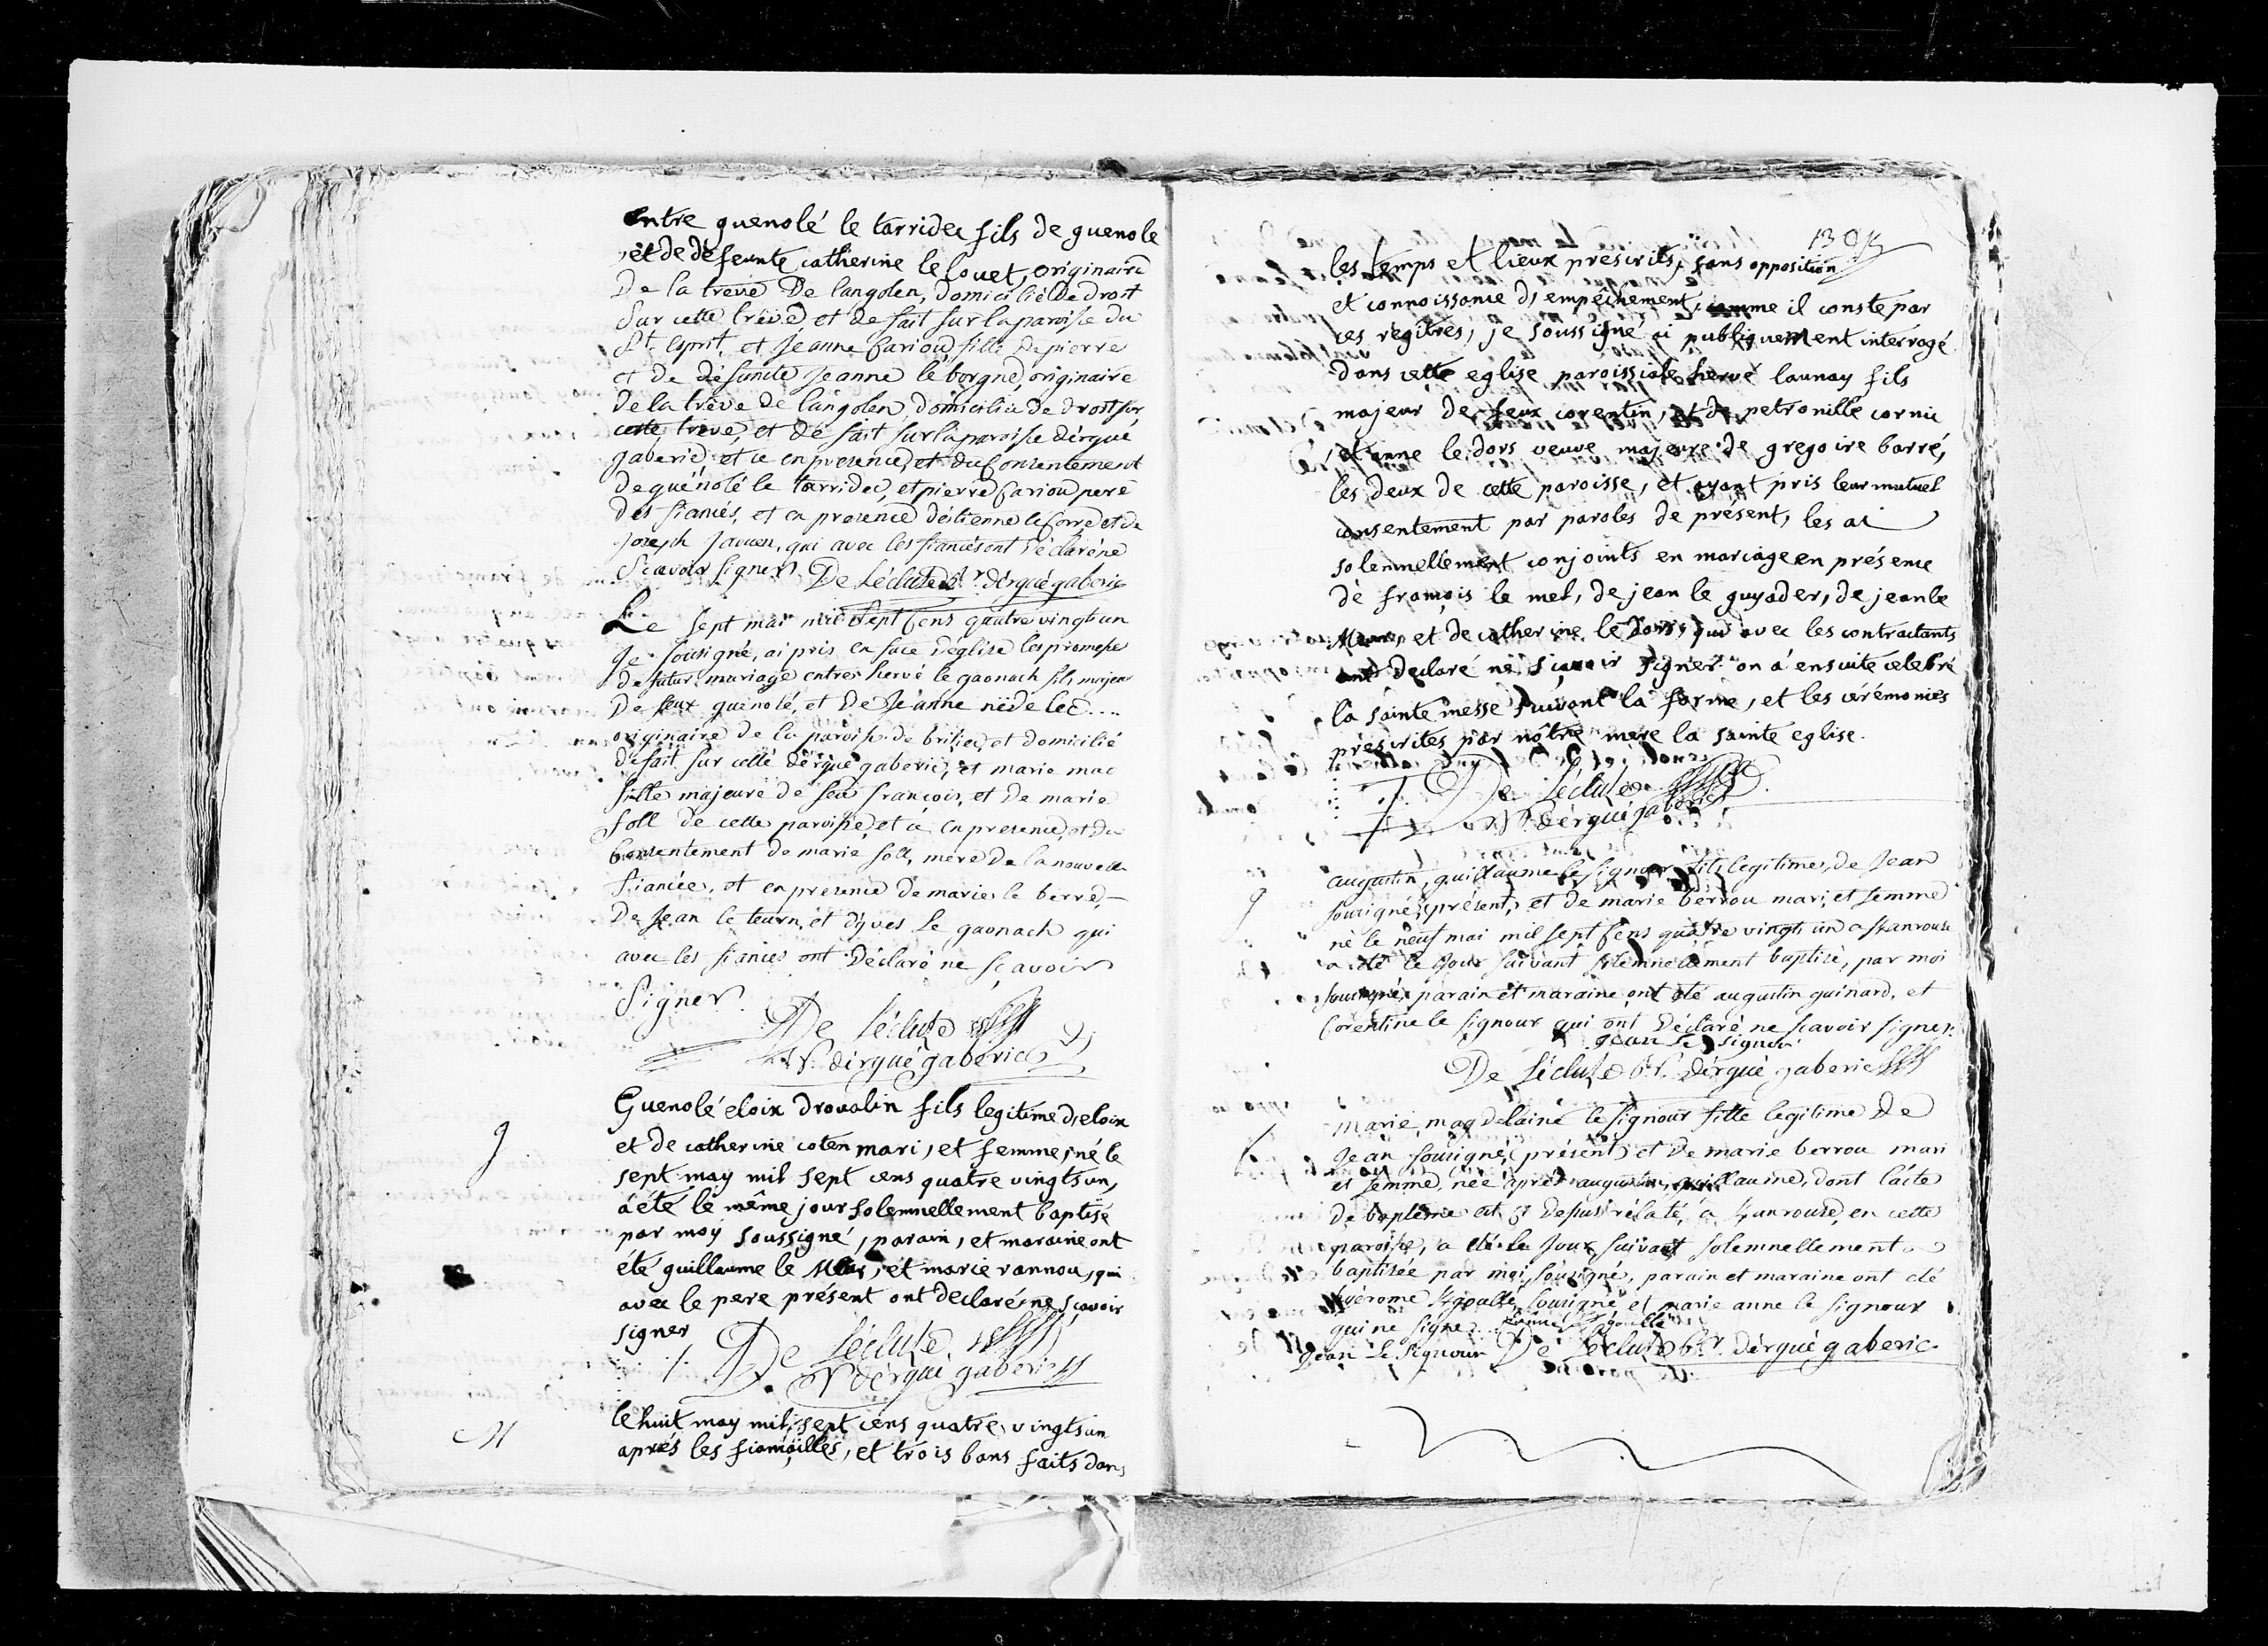 entre guenolé le tarridec fils de guenole
et de defeunte catherine le louet, originaire
De la treve De langolen, domicilié De droit
Sur cette treve et de fait sur la paroisse du
St. esprit, et jeanne cariou fille de pierre
et de défuncte jeanne le borgne, originaire
de la trève de langolen, domiciliée de droit sur
cette treve, et de fait sur la paroisse d'ergué
gaberic, et ce en presence, et du consentement
de guénolé le tarridec, et pierre cariou pere
des fiancés, et en presence d'étienne le corre et de
joseph jaouen, qui avec les fiancés ont déclaré ne
Scavoir Signer De Lécluze Sr. d'ergué gaberic
Le Sept mai mil Sept Cens quatre vingt un
Je Sousigné, ai pris en face d'église les promesse
de futur mariage entre hervé le gaonach fils majeur
De feux guénolé, et De Jeanne nédelec ....
originaire de la paroisse de briliec, et domicilié
de fait sur celle d'ergué gaberic, et marie mac
fille majeure de feu françois, et de marie
foll de cette paroisse, et ce en presence, et du
Consentement de marie foll, mere De la nouvelle
fiancée, et en presence de marie le berre,
De Jean le teurn, et d'yves le gaonach qui
avec les fiancés ont Déclaré ne Sçavoir
Signer.
De Lécluze
Vr. d'ergué gaberic
Guenolé eloix drovalin fils legitime d'eloix
et de catherine coten mari, et femme, né le
sept may mil sept cens quatre vingts un,
a été le même jour solemnellement baptisé
par moy soussigné, parain, et maraine ont
été guillaume le Meur, et marie rannou, qui
avec le pere présent ont declaré ne sçavoir
signer
De Lécluze
Vr d'ergué gaberic
M
le huit may mil sept cens quatre vingts un
aprés les fiançailles, et trois bans faits dans
les temps et lieux présérits, sans opposition
et connoissance d'empêchement, comme il conste par
ces régitres, je soussigné ai publiquement interrogé
dans cette eglise paroissiale hervé launay fils
majeur de feux corentin, et de petronille cornic
et anne le dors veuve majeure de gregoire barré,
les deux de cette paroisse, et ayant pris leur mutuel
consentement par paroles de présent, les ai
solemnellement conjoints en mariage en présence
de françois le mel, de jean le guyader, de jean le
Meur, et de catherine le dors, qui avec les contractants
ont declaré ne sçavoir signer on a ensuite celebré
la sainte messe suivant la forme, et les cérémonies
présirites par nôtre mere la sainte eglise.
De Lécluze
Vr d'ergué gaberic
augustin, guillaume le signour fils legitime, de Jean
sousigné, présent, et de marie berrou mari, et femme
né le neuf mai mil sept cens quatre vingts un a
a été le jour suivant solemnellement baptisé, par moi
sousigné, parain et maraine ont été augustin guinard, et
Corentine le signour qui ont Déclaré ne scavoir signer.
jean Le Signour
De Lécluze Vr. d'ergué gaberic
Marie magdelaine le signour fille legitime De
Jean sousigné, (présent) et De marie berrou mari
et femme, née aprés augustin, guillaume, dont l'acte
de baptême est ci dessus rélaté, a en cette
paroisse, a été le jour suivant solemnellement
baptisée par moi sousigné, parain et maraine ont été
sousigné et marie anne le signour
qui ne signe.
Jean Le Signour De Lécluze Vr. d'ergué gaberic